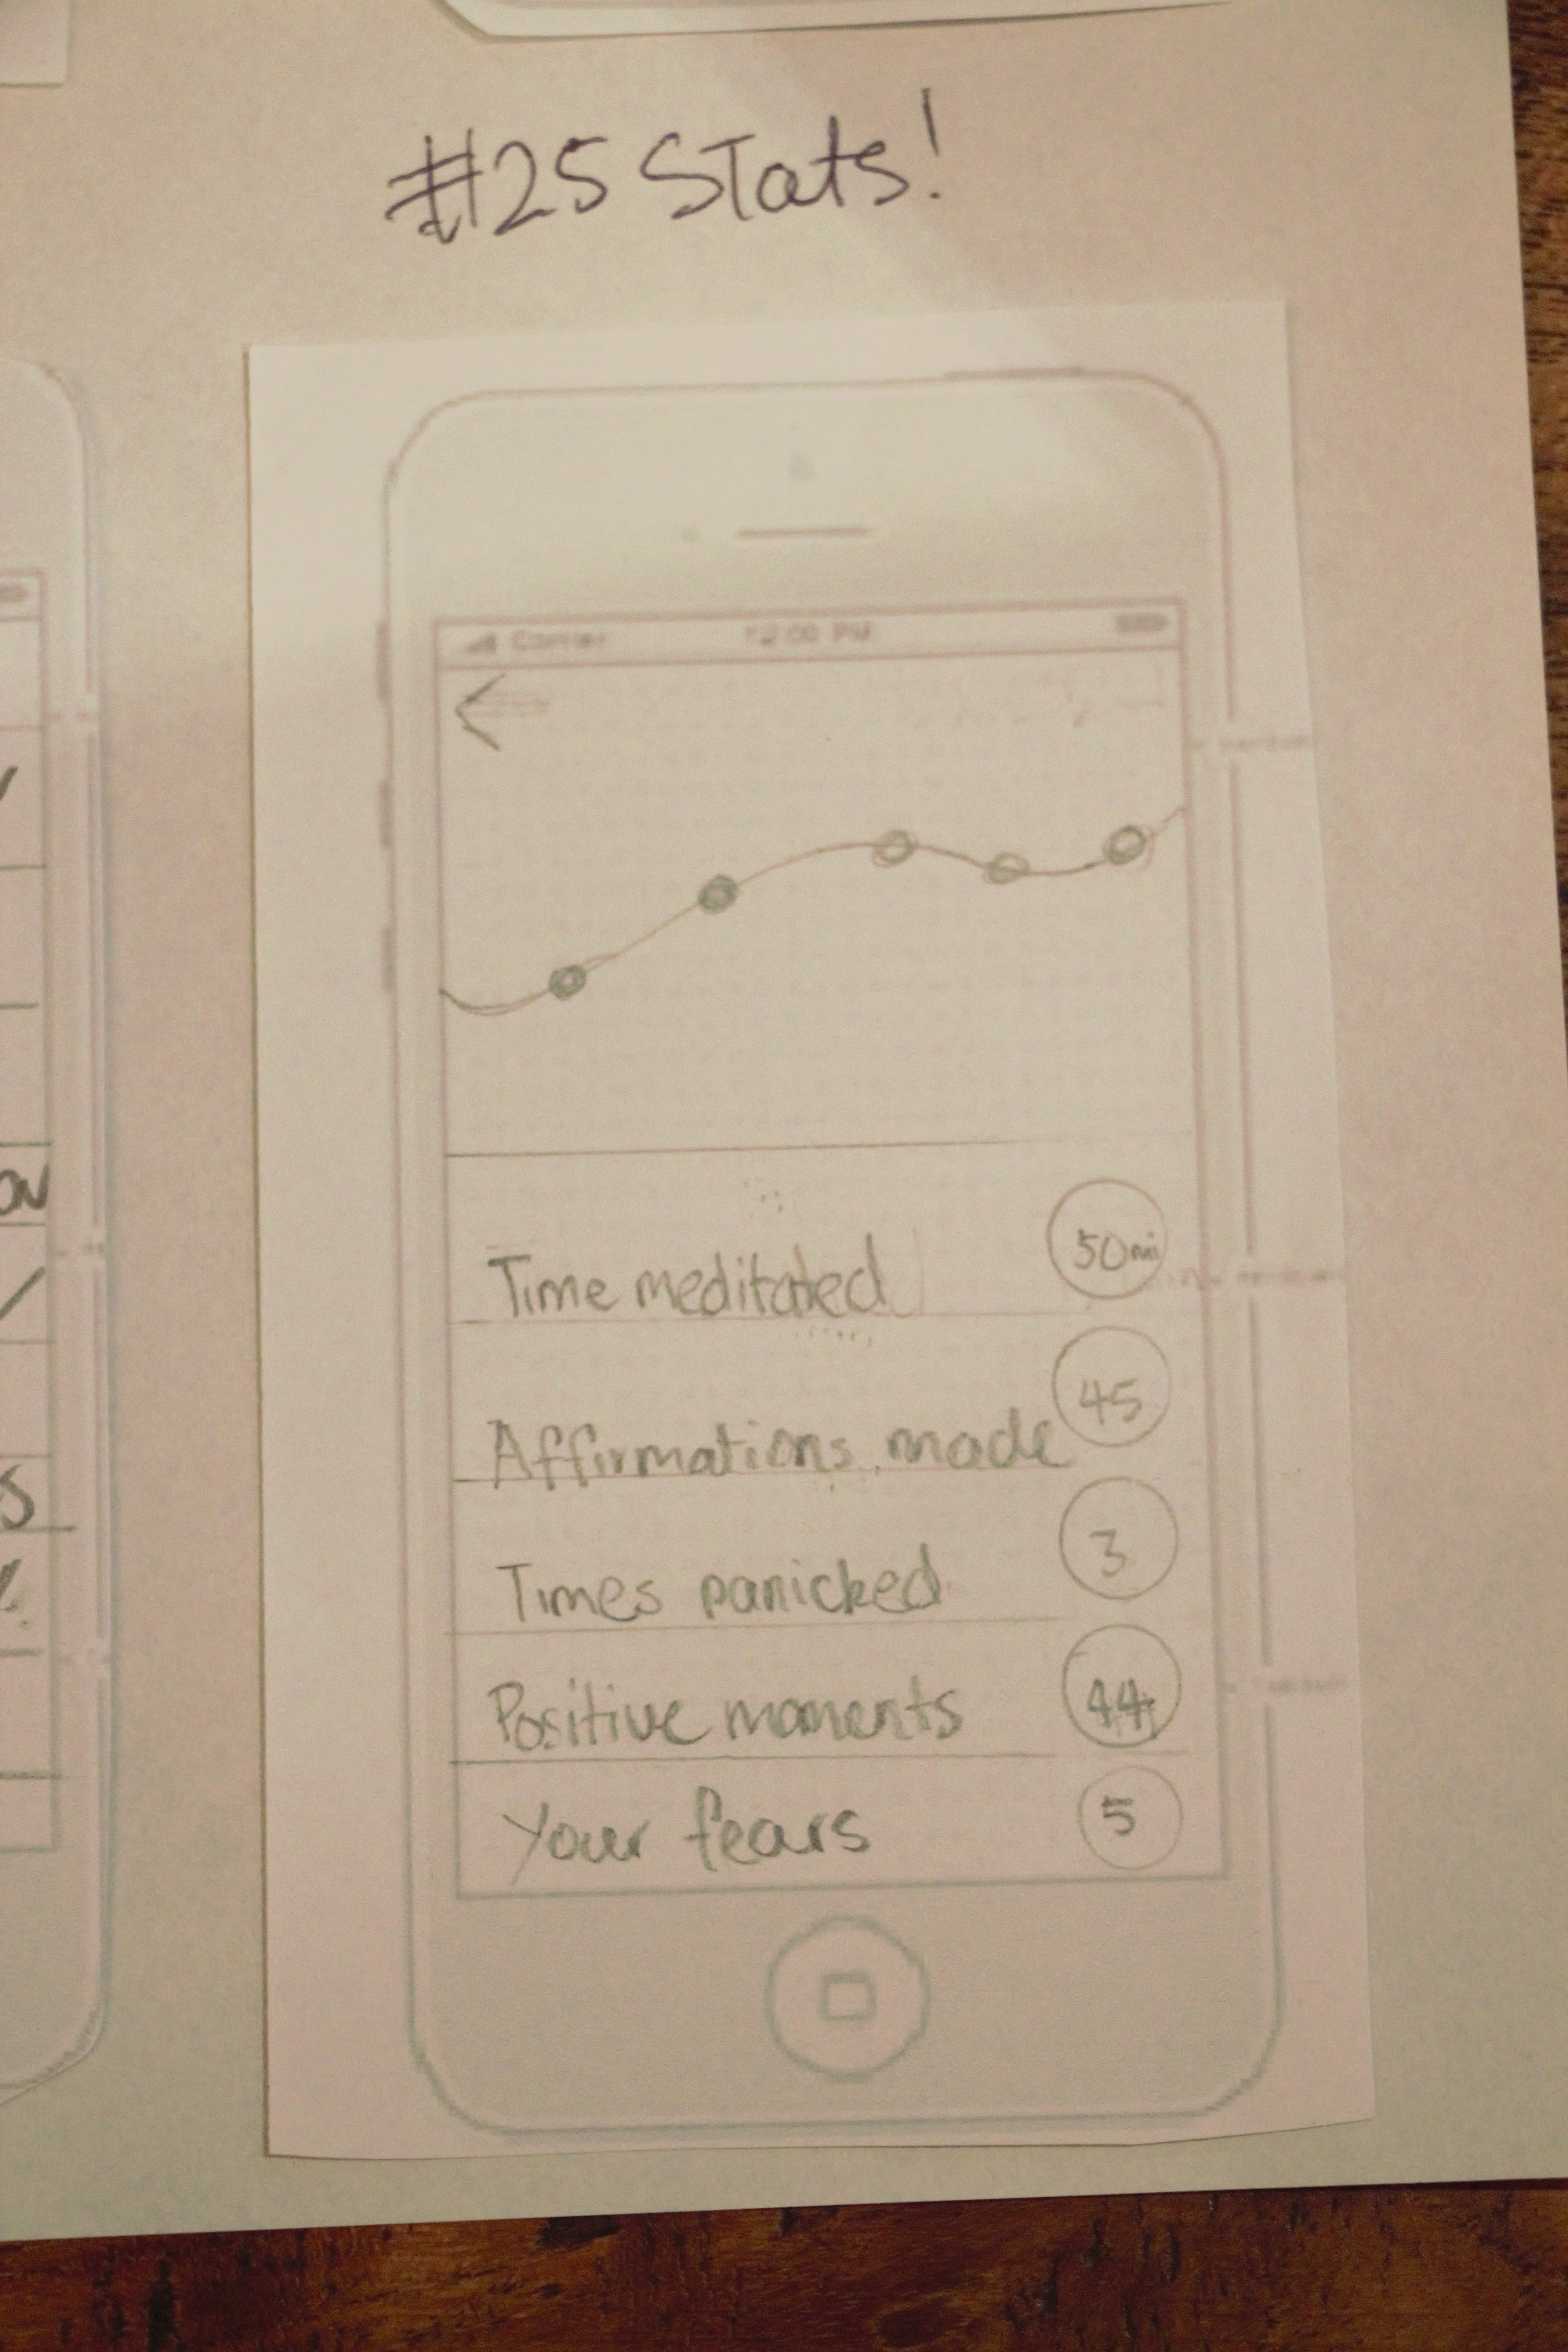 #25 Stats!
Carrier 12:00 PM
Time meditated 50mi
Affirmations made 45
Times panicked 3
Positive moments 44
Your fears 5